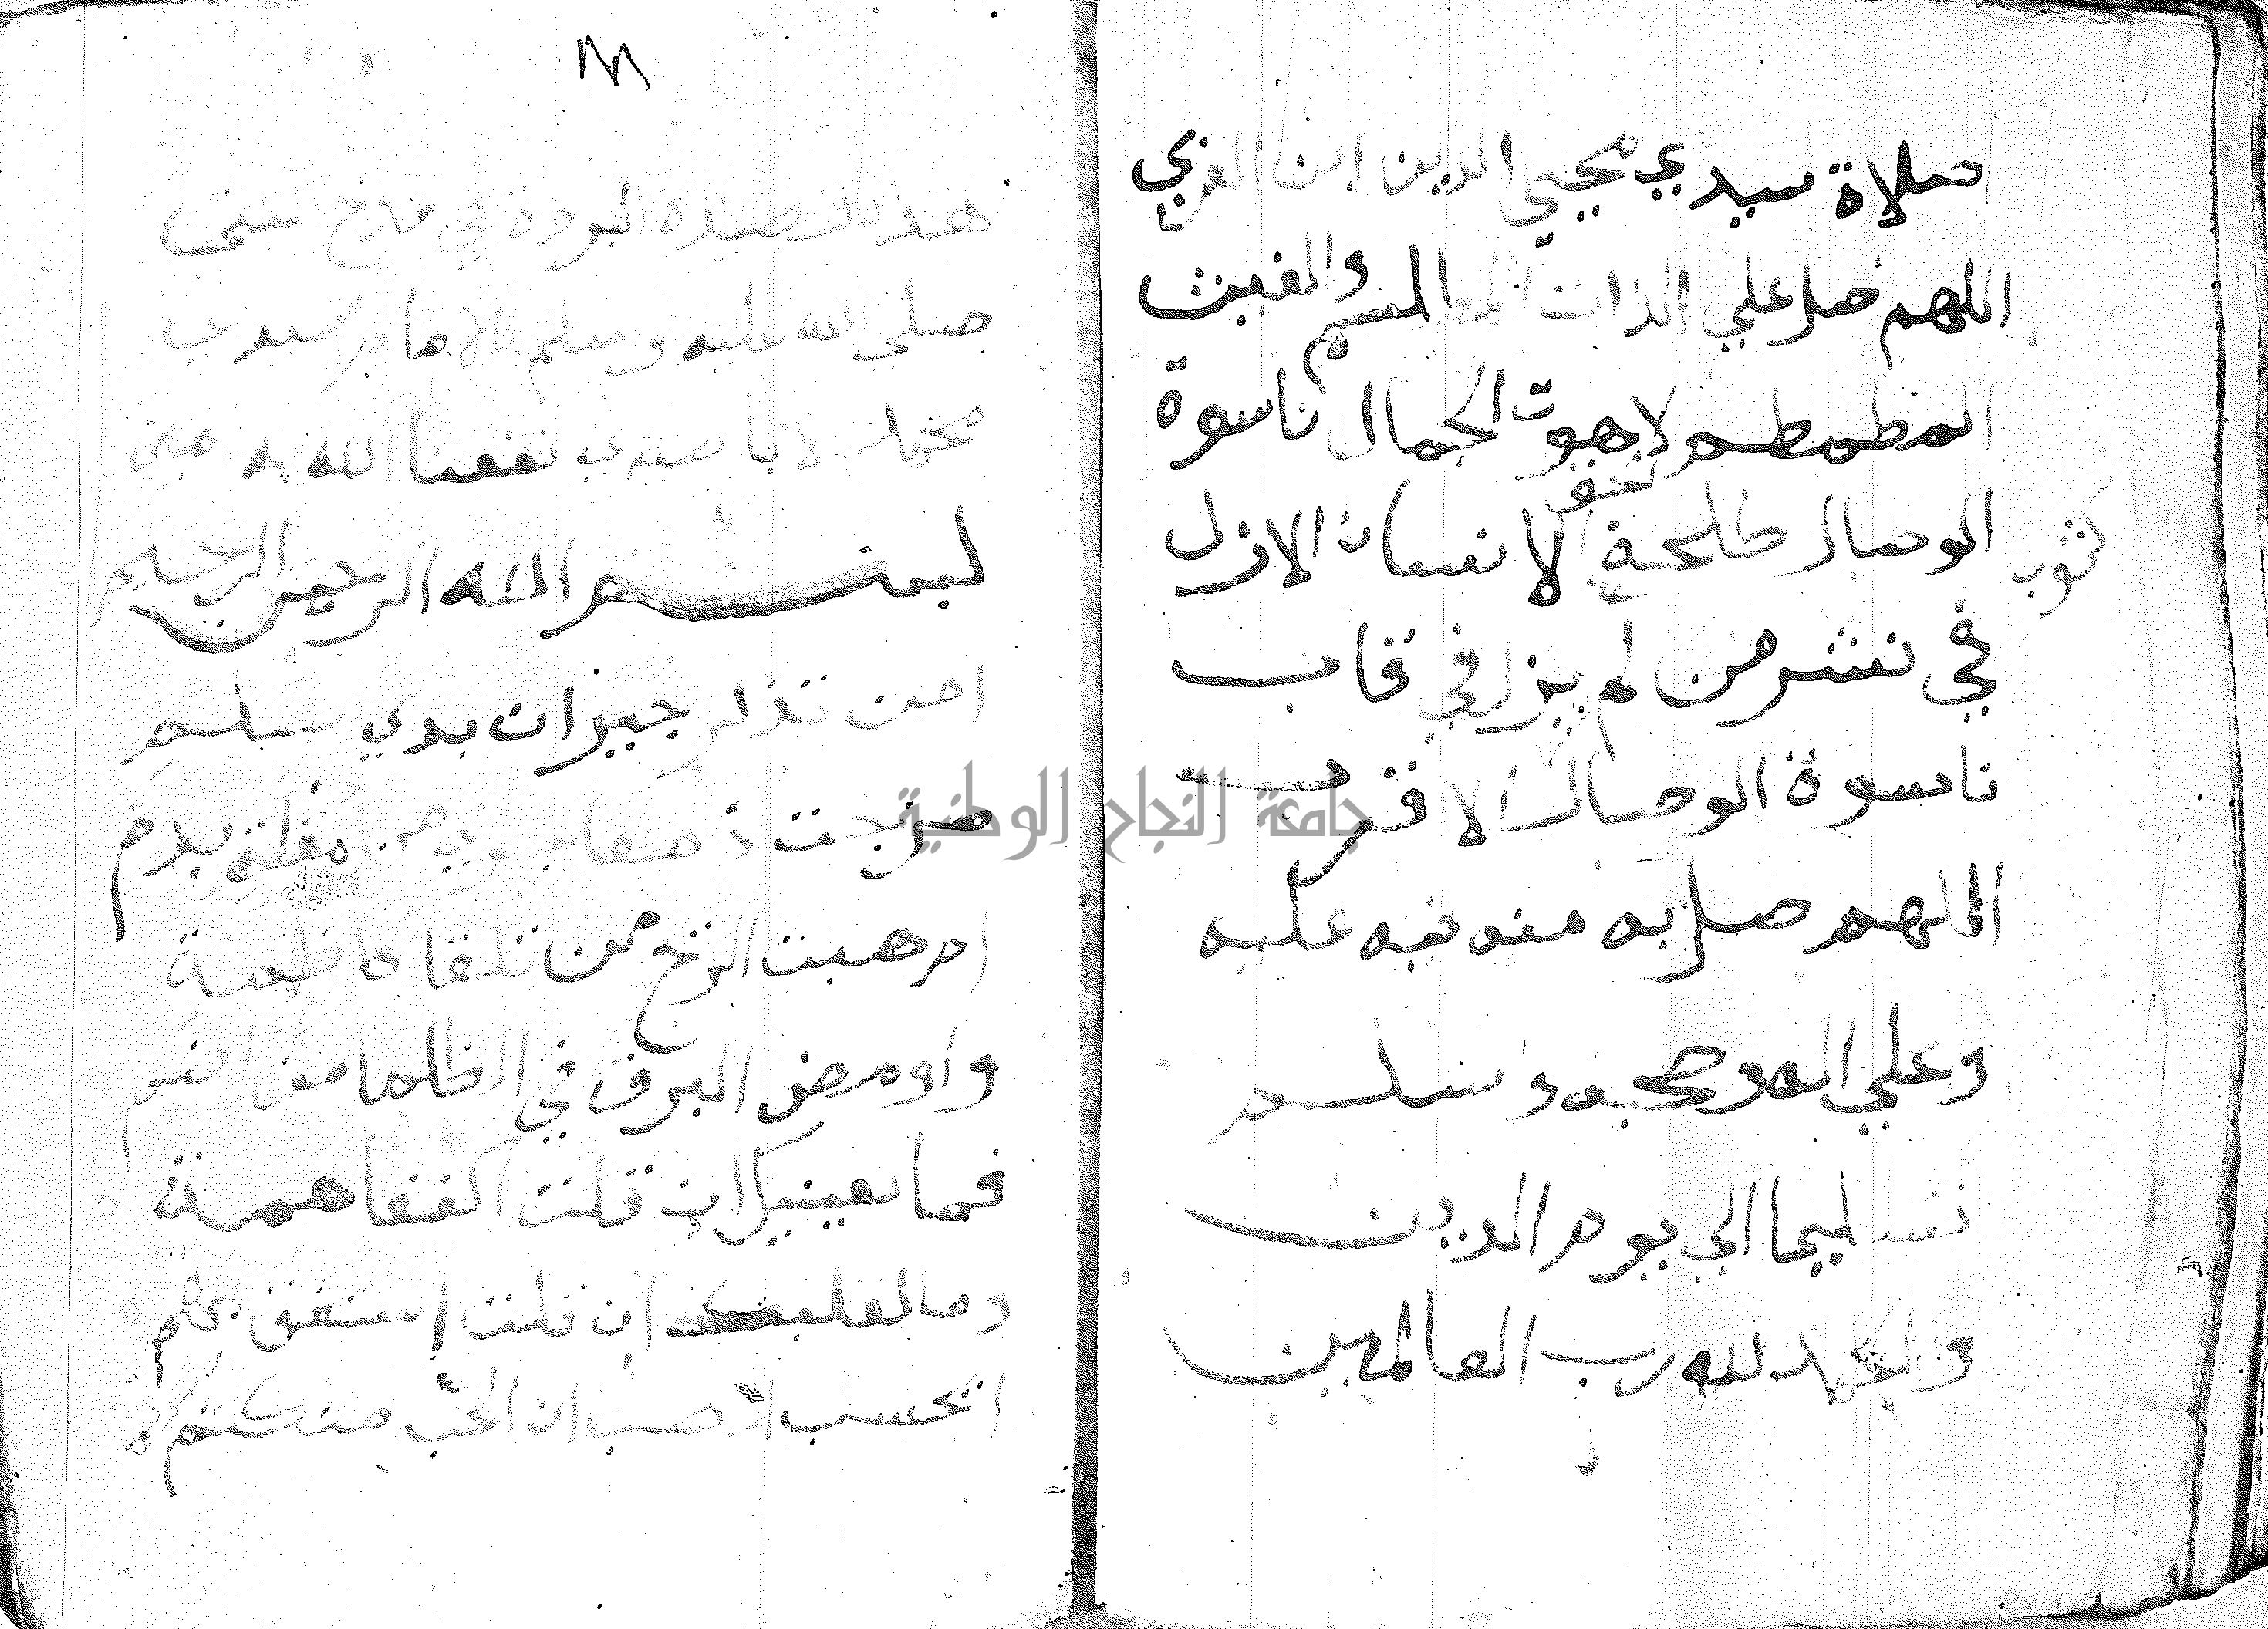 صلاة سيدي محيي الدين ابن العربي
اللهم صل علي الذات المطلسم والغيث
المطمطم لاهوت الجمال ناسوة
الوصال طلحة الحق الانسان الازل
كثوب
في نشر من لم يزل في قاب
ناسوة الوصال الاقرب
اللهم صل به منه فيه عليه
وعلي اله وصحبه وسلم
تسليما الي يوم الدين
والحمد لله رب العالمين
هذه قصيدة البردة في مدح
صلي الله عليه وسلم
محمد نفعنا الله به
بسم الله الرحمن الرحيم
امن تذكر جيران بدي سلم
مزجت دمعا جري من مقلتي بدم
ام هبت الريح من تلقا كاظمة
واومض البرق في الظلما من اضم
فما لعينيك ان قلت اكففا همتا
وما لقلبك ان قلت استفق يهم
اتحسب الصب ان الحب منكتم
جامعة النجاح الوطنية